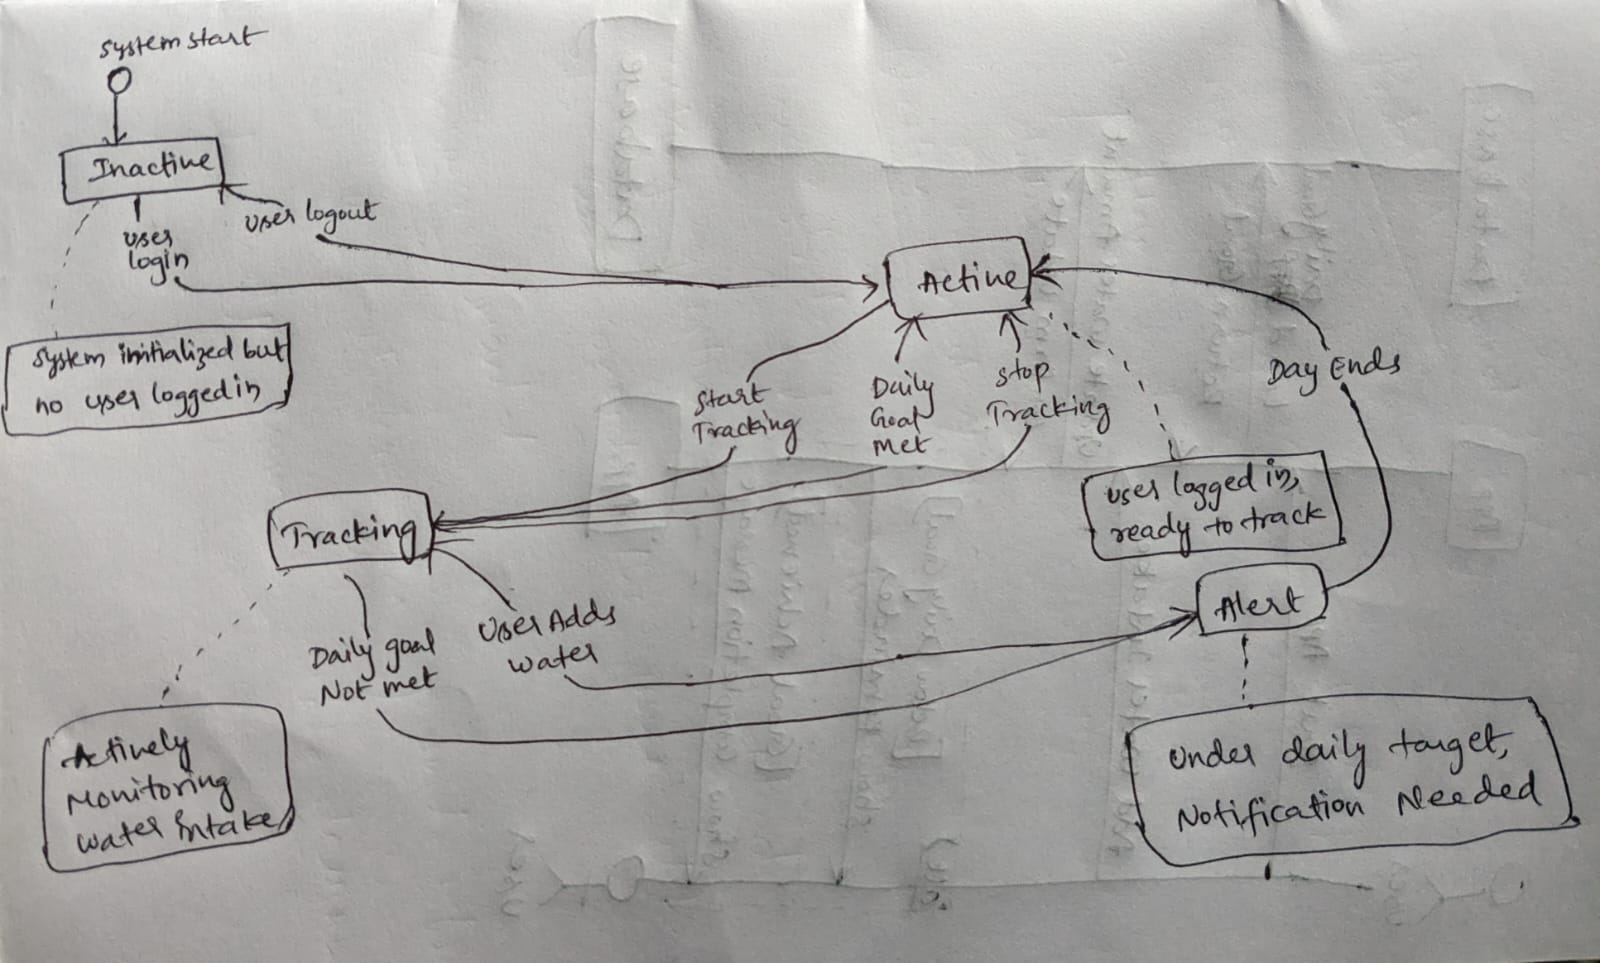 System start
Inactive
User logout
User
login
System initialized but
no user logged in
Active
Day Ends
Start
Tracking
Daily
Goal
Met
Stop
Tracking
User logged in,
ready to track
Tracking
Alert
Daily goal
Not met
User Adds
water
Actively
Monitoring
Water Intake
Under daily target,
Notification Needed
Database